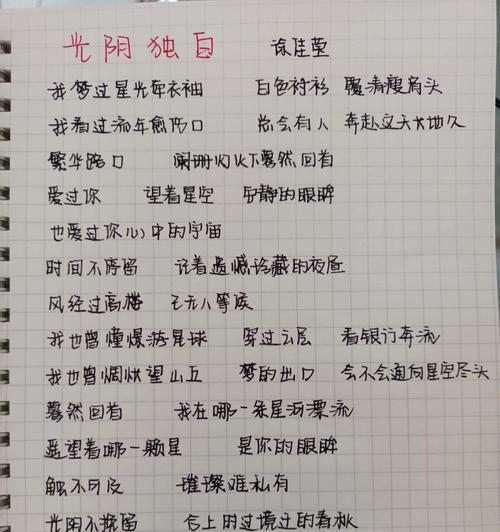 光阴独白 徐佳莹
我梦过星光牵衣袖 白色衬衫 覆清瘦肩头
我看过流年愈伤口 总会有人 奔赴这天长地久
繁华路口 阑珊灯火下蓦然回首
爱过你 望着星空 安静的眼眸
也爱过你心中的宇宙
时间不停留 记着遗憾珍藏的夜昼
风经过高楼 已无人等候
我也曾憧憬游星球 穿过云层 看银行奔流
我也曾惆怅望山丘 梦的出口 会不会通向星空尽头
蓦然回首 我在哪一条星河漂流
遥望着哪一颗星 是你的眼眸
触不可及 璀璨难私有
光阴不挽留 合上时过境迁的春秋